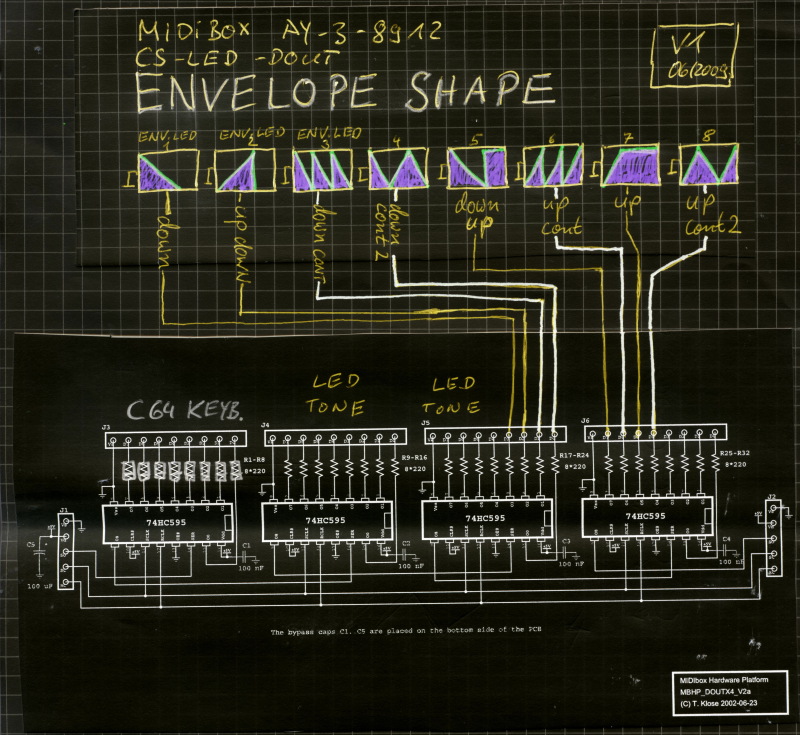 MIDIBOX AY-3-8912
CS-LED-DOUT
V1
06/2009
ENVELOPE SHAPE
ENV.LED ENV.LED ENV.LED
1 2 3 4 5 6 7 8
down
up down
down cont
down cont 2
down up
up cont
up
up cont 2
LED TONE
LED TONE
C64 KEYB.
J3 J4 J5 J6
R1-R8 R9-R16 R17-R24 R25-R32
8*220 8*220 8*220
74HC595 74HC595 74HC595 74HC595
J1 J2
C5 C1 C2 C3 C4
100 nF 100 nF 100 nF 100 nF
100 uF
The bypass caps C1..C5 are placed on the bottom side of the PCB
MIDIbox Hardware Platform
MBHP_DOUTX4_V2a
(C) T. Klose 2002-06-23